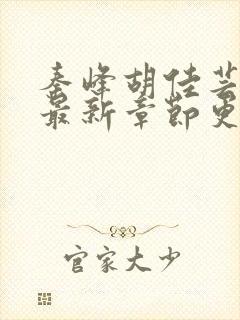 秦峰胡佳芸
最新章节更
官家大少